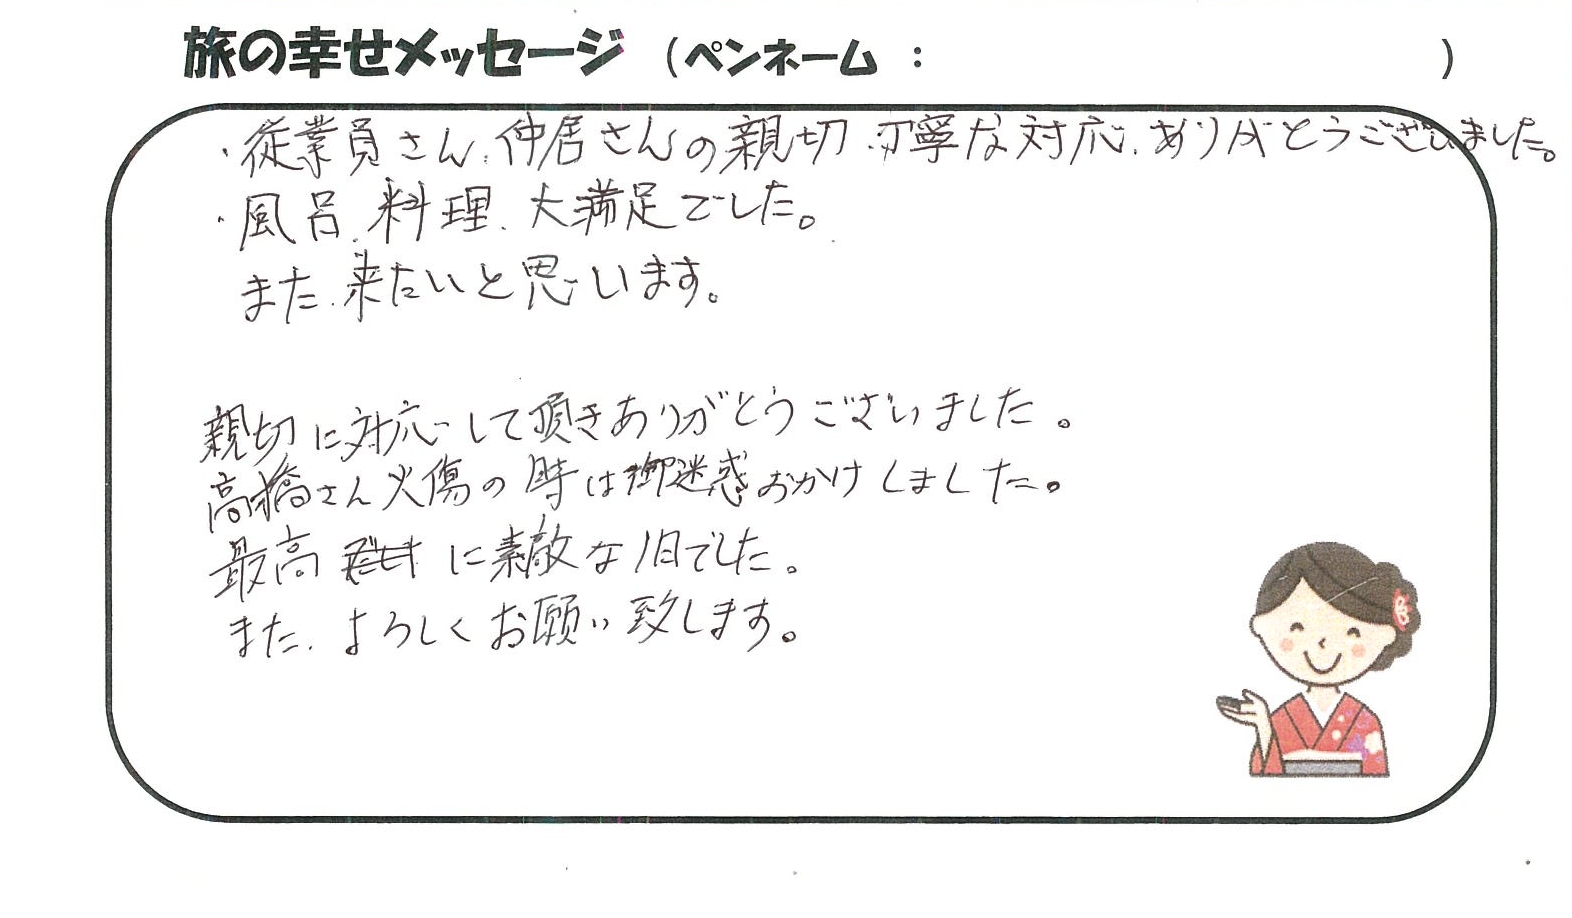 旅の幸せメッセージ (ペンネーム : )
・従業員さん、仲居さんの親切、丁寧な対応、ありがとうございました。
・風呂、料理、大満足でした。
また、来たいと思います。
親切に対応して頂きありがとうございました。
高橋さん火傷の時は御迷惑おかけしました。
最高に素敵な1日でした。
また、よろしくお願い致します。